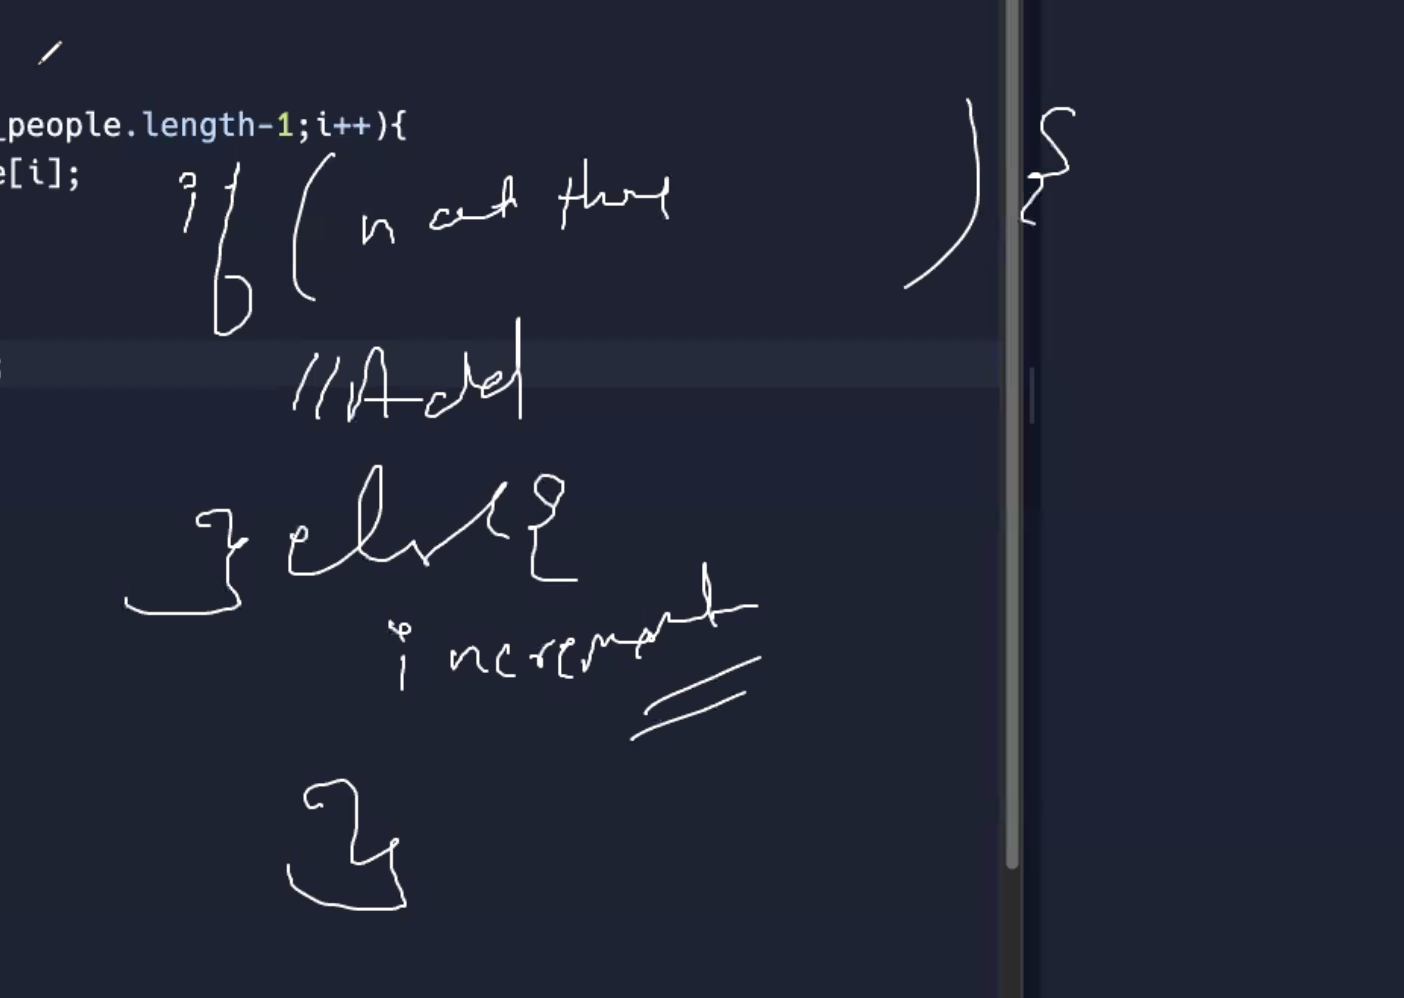 _people.length-1;i++){
e[i];
if (not there ) {
//Add
} else {
increment
}